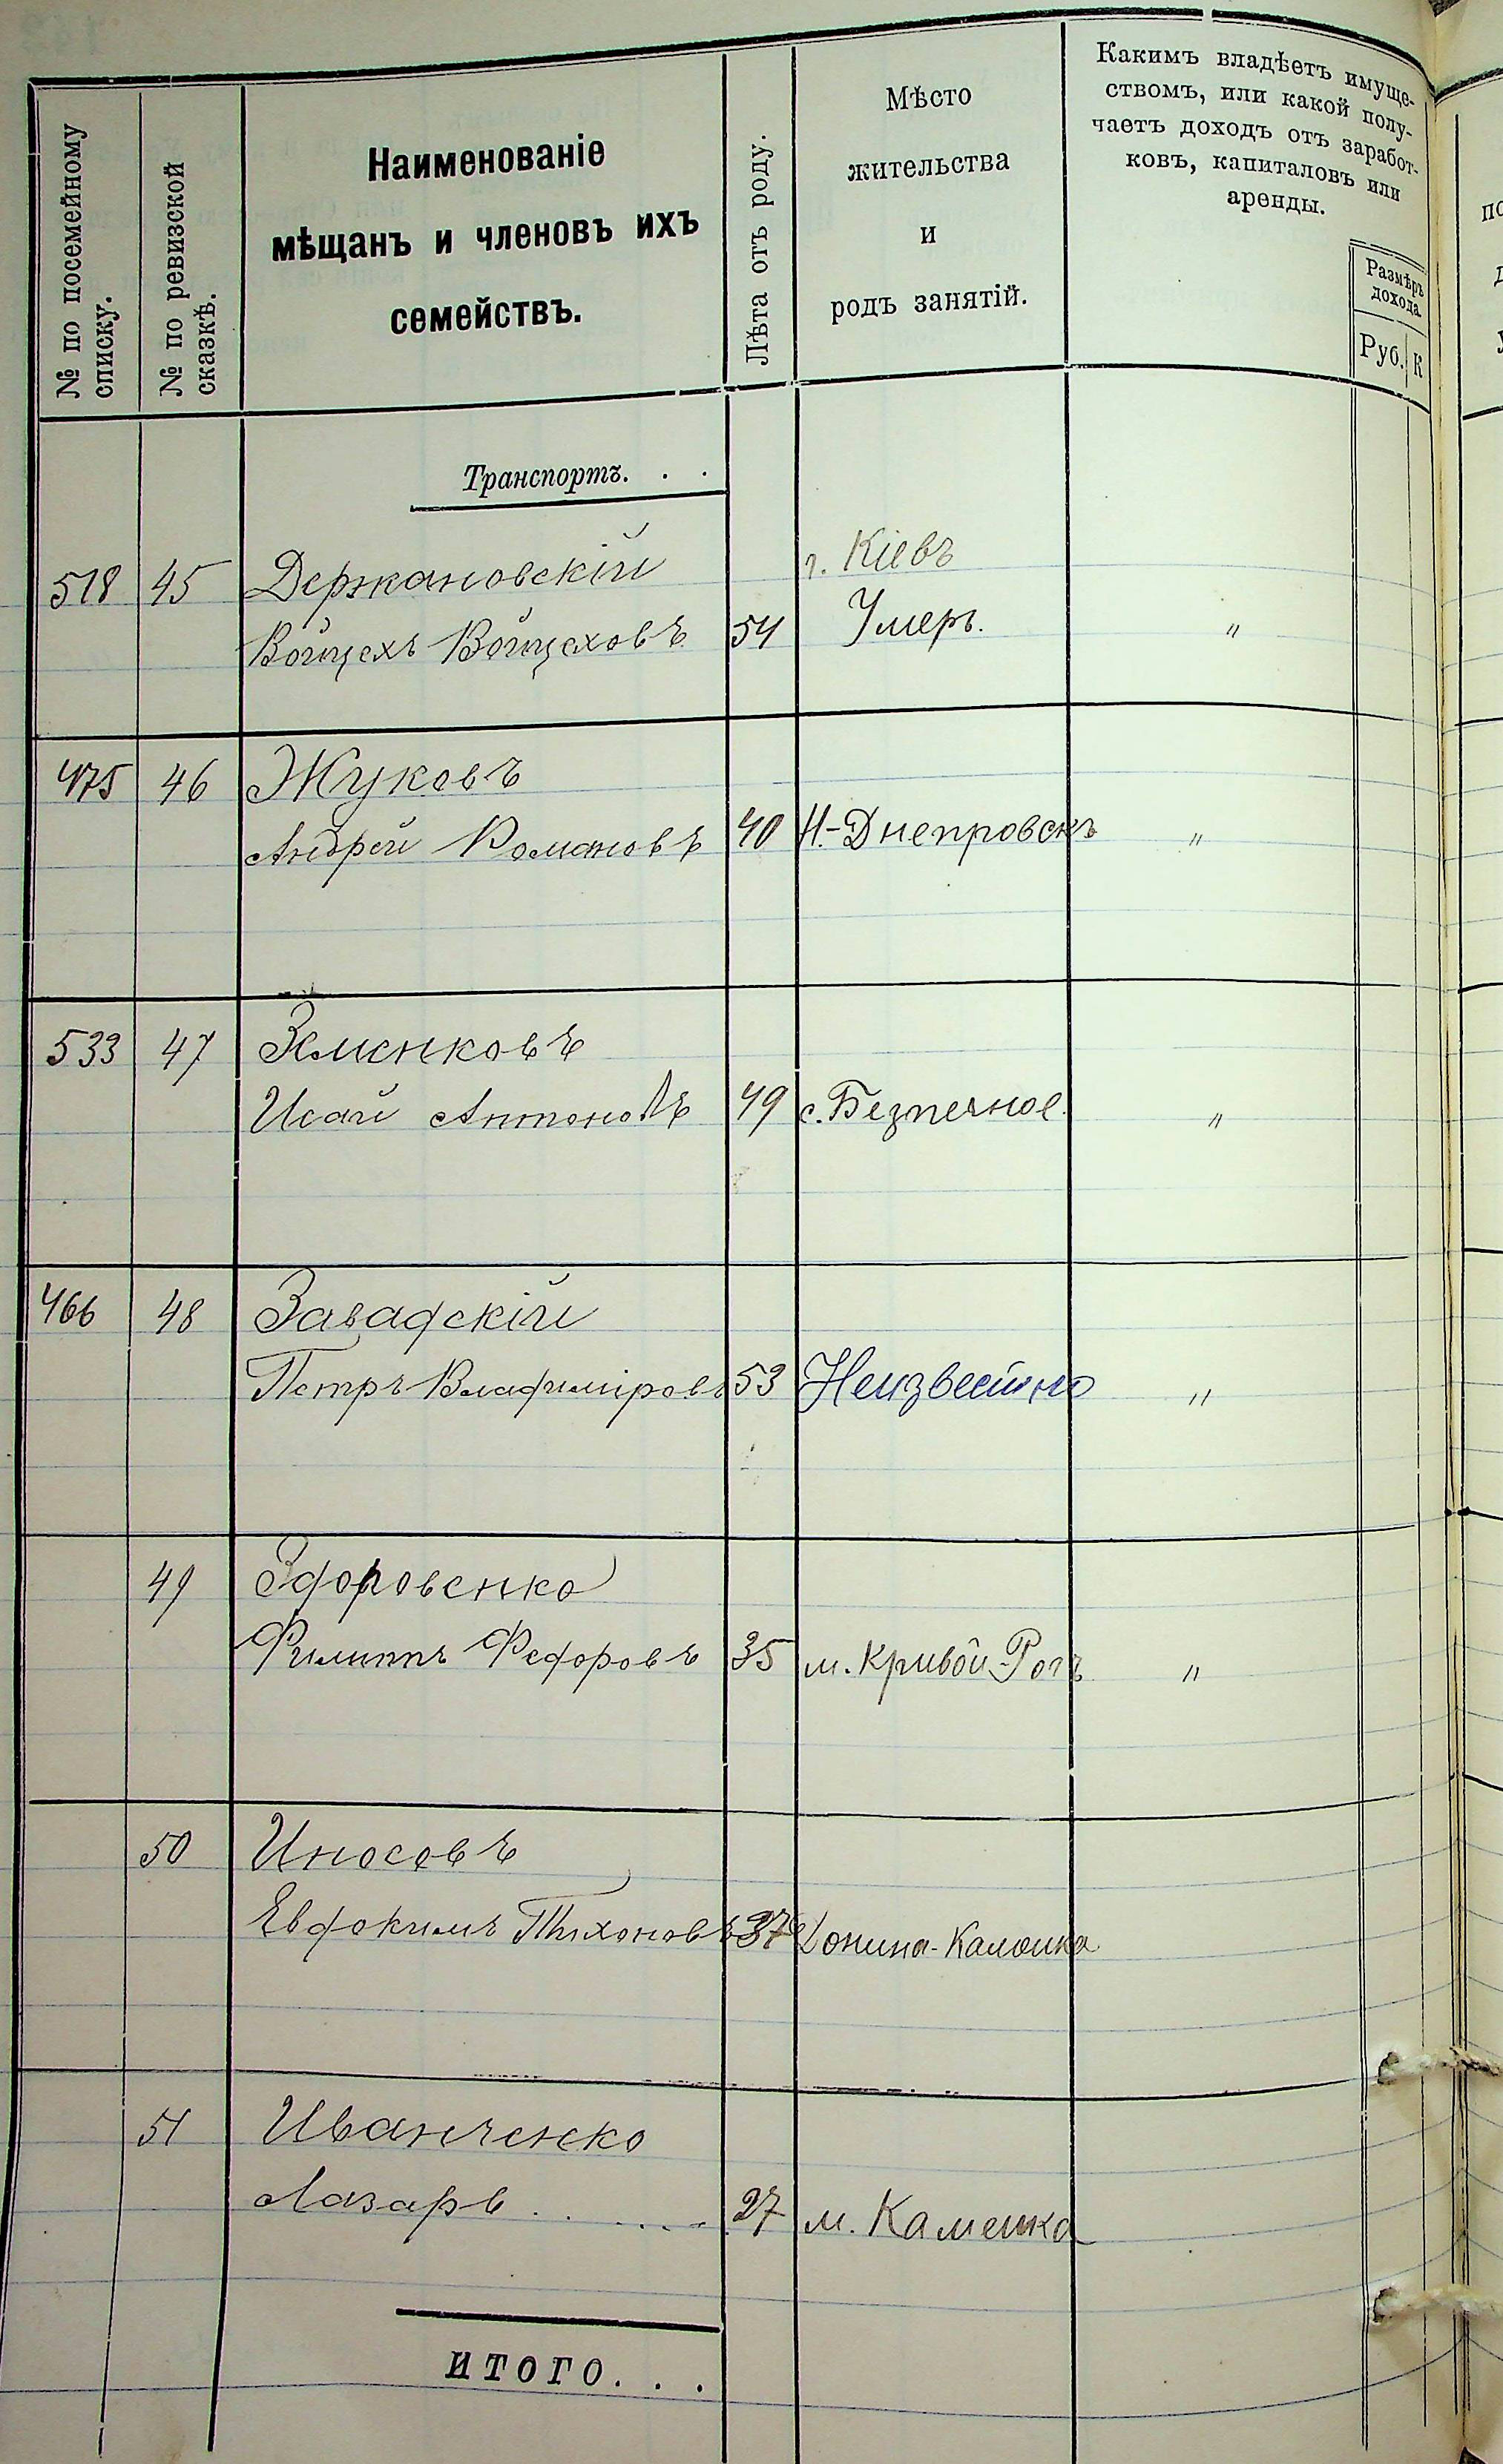 № по посемейному
списку.
№ по ревизской
сказкѣ.
Наименованіе
мѣщанъ и членовъ ихъ
семействъ.
Лѣта отъ роду.
Мѣсто
жительства
и
родъ занятій.
Какимъ владѣетъ имуще-
ствомъ, или какой полу-
чаетъ доходъ отъ заработ-
ковъ, капиталовъ или
аренды.
Размѣръ
дохода
Руб. К
Транспортъ. . .
518 45 Держановскій г. Кіевъ
Войцехъ Войцеховъ 54 Умеръ. "
475 46 Жуковъ
Андрей Романовъ 40 Н.-Днепровскъ "
533 47 Земенковъ
Исай Антоновъ 49 с. Безпечное. "
466 48 Завадскій
Петръ Владиміровъ 53 Неизвестно "
49 Здоровенко
Филиппъ Федоровъ 35 м. Кривой-Рогъ "
50 Иносовъ
Евдокимъ Тихоновъ 37 Лонина-Каменка
51 Иванченко
Лазарь . . . . . 27 м. Каменка
ИТОГО. . .